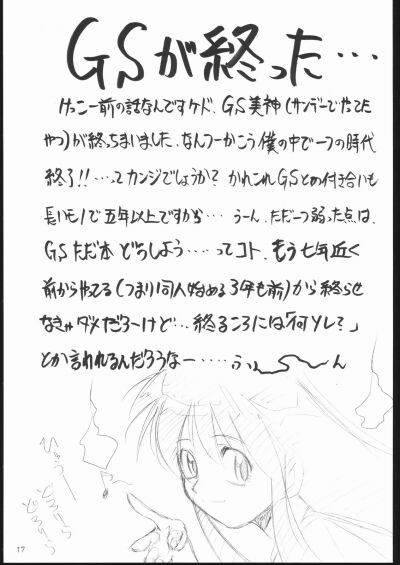 GSが終った…
けっこー前の話なんですケド、GS美神(サンデーでやってた
やつ)が終っちまいました、なんつーかこう僕の中で一つの時代
終了!!…ってカンジでしょうか? かれこれGSとの付き合いも
長いモノで五年以上ですから… うーん、ただ一つ弱った点は、
GSただ本 どうしよう…ってコト、もう七年近く
前からやってる(つまり同人始める3年も前)から終らせ
なきゃダメだろーけど…終るころには「何ソレ?」
とか言われるんだろうなー……ふぅ〜ん
ひゅうー
どろりろ
どろりろ
17